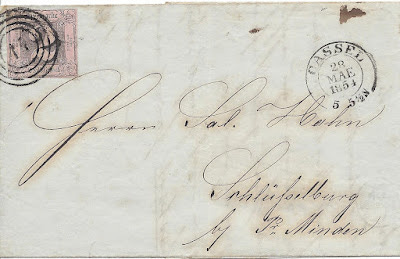 CASSEL
29
MAE
1854
5 5½N
Herrn Sal. Hahn
Schlüsselburg
b/ Pr. Minden